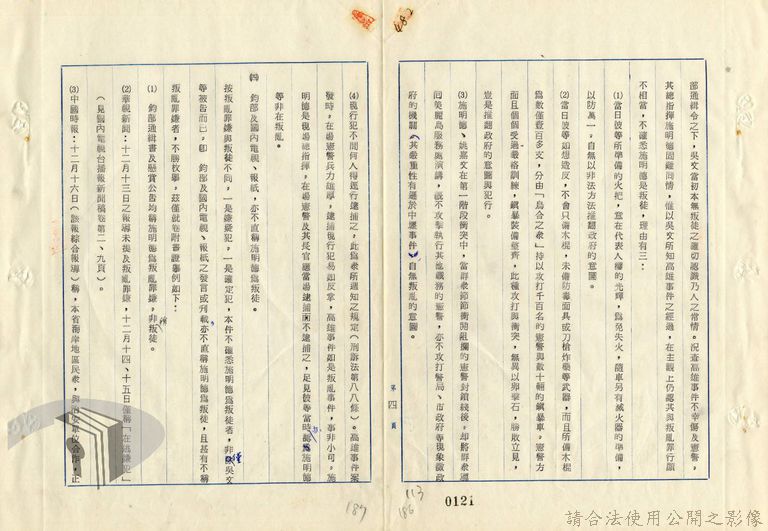 部通緝令之下，吳文當初本無叛徒之確切認識乃人之常情。況查高雄事件不幸傷及憲警，
其總指揮施明德固難同情，惟以吳文所知高雄事件之經過，在主觀上仍認其與叛亂罪行顯
不相當，不確悉施明德是叛徒，理由有三：
(1)當日彼等所準備的火把，意在代表人權的光輝，為免失火，隨車另有滅火器的準備，
以防萬一，自無以非法方法推翻政府的意圖。
(2)當日彼等如想造反，不會只備木棍，未備防毒面具或刀槍炸藥等武器，而且所備木棍
為數僅壹百多支，分由「烏合之衆」持以攻打千百名的憲警與數十輛的鎮暴車。憲警方
面且個個受過嚴格訓練，鎮暴裝備整齊，此種攻打與衝突，無異以卵擊石，勝敗立見，
豈是推翻政府的意圖與犯行。
(3)施明德、姚嘉文在第一階段衝突中，當群衆節節衝開阻攔的憲警封鎖綫後，却將群衆
回美麗島服務處演講，既不攻擊執行其他職務的憲警，亦不攻打警局、市政府等現象徵政
府的機關（其嚴重性有遜於中壢事件），自無叛亂的意圖。
第四頁
(4)現行犯不問何人得逕行逮捕之，此為衆所週知之規定（刑訴法第八八條）。高雄事件案
發時，在場憲警兵力雄厚，逮捕現行犯易如反掌，高雄事件如是叛亂事件，事非小可。施
明德是現場總指揮，在場憲警及其長官應當場逮捕而不逮捕之，足見彼等當時認施明德
等非在叛亂。
㈣ 鈞部及國內電視、報紙，亦不直稱施明德為叛徒。
按叛亂罪嫌與叛徒不同，一是嫌疑犯，一是確定犯，本件不確悉施明德為叛徒者，非僅吳文
等被告而已，即 鈞部及國內電視、報紙之發言或刊載，亦不直稱施明德為叛徒，且甚有不稱
叛亂罪嫌者，不勝枚擧，茲僅就卷附書證擧例如下：
(1) 鈞部通緝書及懸賞公告均稱施明德為叛亂罪嫌，非僅叛徒。
(2)華視新聞：十二月十三日之報導未提及叛亂罪嫌，十二月十四、十五日僅稱「在逃嫌犯」
（見國內電視台播報新聞稿卷第二、九頁）。
(3)中國時報：十二月十六日（該報綜合報導）稱，本省海岸地區民衆，與治安單位合作，正
0121
113
186
187
482
請合法使用公開之影像